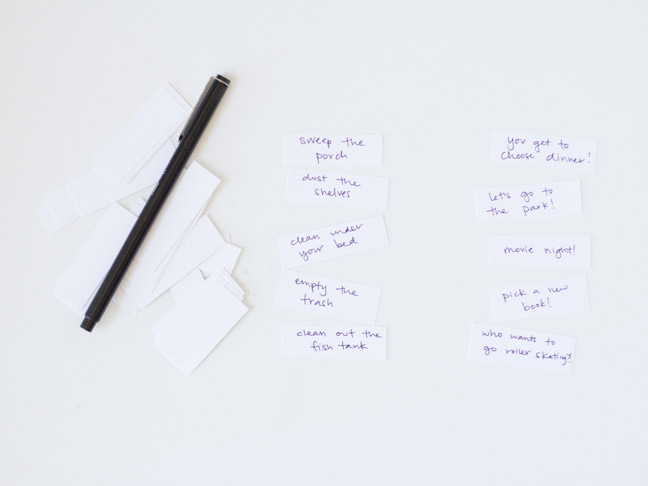 sweep the
porch
dust the
shelves
clean under
your bed
empty the
trash
clean out the
fish tank
you get to
choose dinner!
let's go to
the park!
movie night!
pick a new
book!
who wants to
go roller skating?